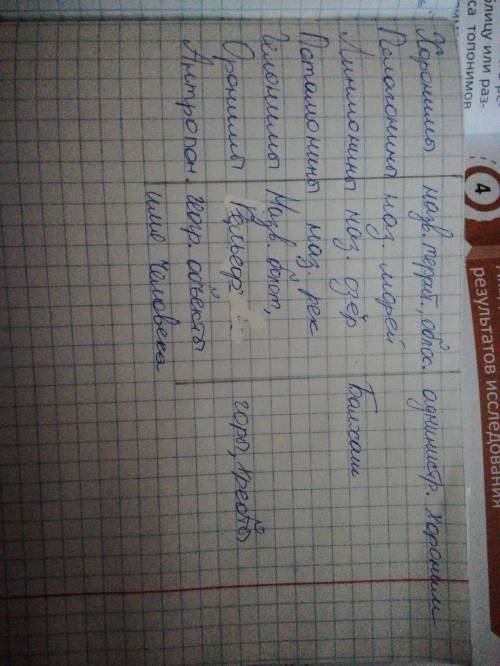 блицу или раз-
са топонимов
4
результатов исследования
Хоронимы назв. террит., облас. администр. Хоронимы
Пелагонимы наз. морей
Лимнонимы наз. озёр Балхаш
Потамонимы наз. рек
Гелонимы Назв. болот,
Оронимы Рельеф горы, хребты
Антропон. геогр. объекты
имя человека